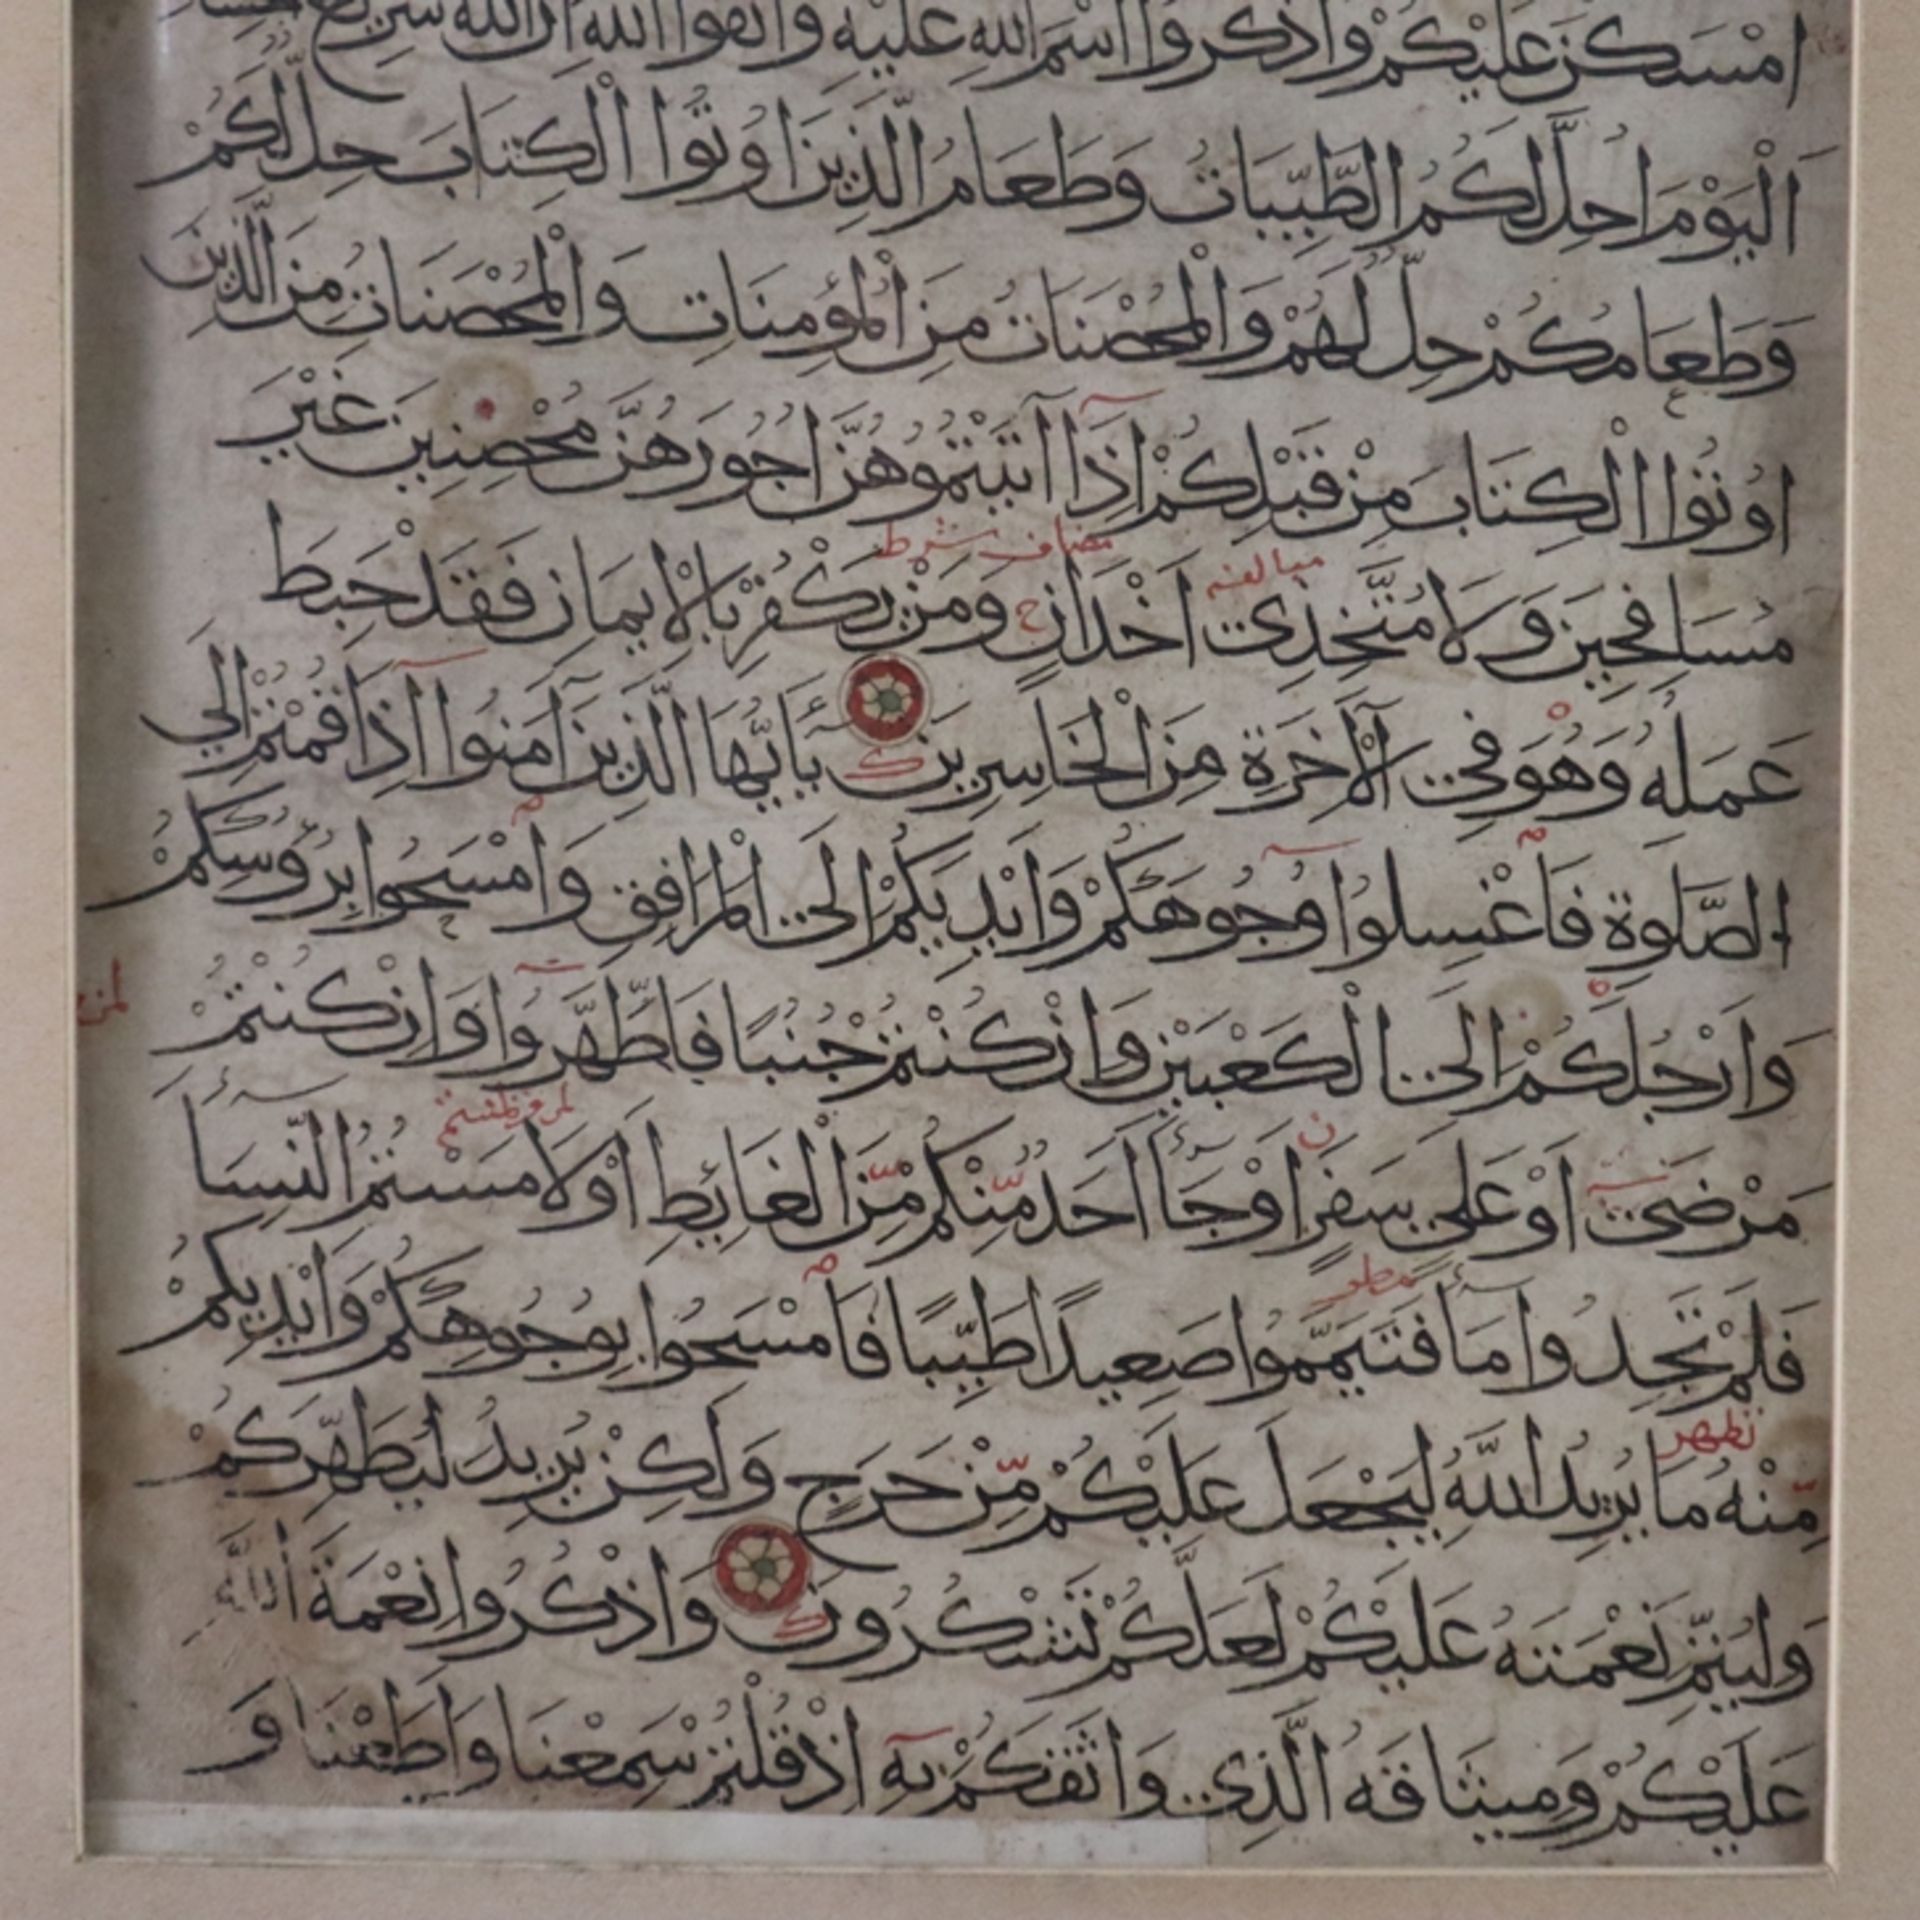 امْسَكْنَ عَلَيْكُمْ وَاذْكُرُوا اسْمَ اللهِ عَلَيْهِ وَاتَّقُوا اللهَ اِنَّ اللهَ سَرِيعُ
اَلْيَوْمَ اُحِلَّ لَكُمُ الطَّيِّبَاتُ وَطَعَامُ الَّذِينَ اُوتُوا الْكِتَابَ حِلٌّ لَكُمْ
وَطَعَامُكُمْ حِلٌّ لَهُمْ وَالْمُحْصَنَاتُ مِنَ الْمُؤْمِنَاتِ وَالْمُحْصَنَاتُ مِنَ الَّذِينَ
اُوتُوا الْكِتَابَ مِنْ قَبْلِكُمْ اِذَا آتَيْتُمُوهُنَّ اُجُورَهُنَّ مُحْصِنِينَ غَيْرَ
مُسَافِحِينَ وَلَا مُتَّخِذِي اَخْدَانٍ وَمَنْ يَكْفُرْ بِالْاِيمَانِ فَقَدْ حَبِطَ
عَمَلُهُ وَهُوَ فِي الْآخِرَةِ مِنَ الْخَاسِرِينَ يَٓأَيُّهَا الَّذِينَ آمَنُوا اِذَا قُمْتُمْ اِلَى
الصَّلٰوةِ فَاغْسِلُوا وُجُوهَكُمْ وَاَيْدِيَكُمْ اِلَى الْمَرَافِقِ وَامْسَحُوا بِرُؤُسِكُمْ
وَاَرْجُلَكُمْ اِلَى الْكَعْبَيْنِ وَاِنْ كُنْتُمْ جُنُبًا فَاطَّهَّرُوا وَاِنْ كُنْتُمْ
مَرْضَى اَوْ عَلَى سَفَرٍ اَوْ جَاءَ اَحَدٌ مِّنْكُمْ مِّنَ الْغَائِطِ اَوْ لَامَسْتُمُ النِّسَاءَ
فَلَمْ تَجِدُوا مَاءً فَتَيَمَّمُوا صَعِيدًا طَيِّبًا فَامْسَحُوا بِوُجُوهِكُمْ وَاَيْدِيكُمْ
مِّنْهُ مَا يُرِيدُ اللهُ لِيَجْعَلَ عَلَيْكُمْ مِّنْ حَرَجٍ وَلَكِنْ يُرِيدُ لِيُطَهِّرَكُمْ
وَلِيُتِمَّ نِعْمَتَهُ عَلَيْكُمْ لَعَلَّكُمْ تَشْكُرُونَ وَاذْكُرُوا نِعْمَةَ اللهِ
عَلَيْكُمْ وَمِيثَاقَهُ الَّذِي وَاثَقَكُمْ بِهِ اِذْ قُلْتُمْ سَمِعْنَا وَاَطَعْنَا وَ